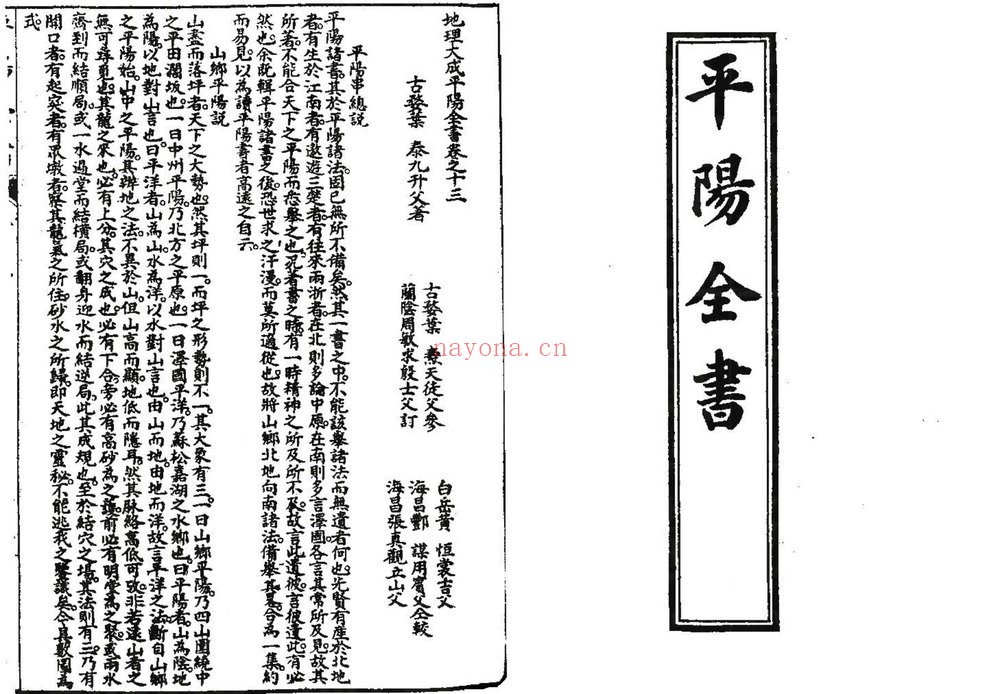 平陽全書
地理大成平陽全書卷之十三
古婺葉 泰九升父著
古婺葉 燾天徒父參
蘭陰周敏求殷士父訂
白岳黃 恒裳吉父
海昌酆 謀用賓父仝較
海昌張真觀立山父
平陽串總說
平陽諸書其於平陽諸法固已無所不備矣然其一書之中不能該舉諸法而無遺者何也先賢有産於北地
者有生於江南者有遨遊三楚者有往來兩浙者在北則多論中原在南則多言澤國各言其常所及見故其
所著不能合天下之平陽而悉舉之也況著書之時有一時精神之所及所不及故言此遺彼言彼遺此有必
然也余既輯平陽諸書之後恐世求之汗漫而莫所適從也故將山鄉北地向南諸法備舉其畧合為一集約
而易見以為讀平陽書者高遠之自云
山鄉平陽說
山盡而落坪者天下之大勢也然其坪則一而坪之形勢則不一其大象有三一曰山鄉平陽乃四山圍繞中
之平田濶坂也一曰中州平陽乃北方之平原也一曰澤國平洋乃蘇松嘉湖之水鄉也曰平陽者山為陰地
為陽以地對山言也曰平洋者山為山水為洋以水對山言也由山而地由地而洋故言平洋之法斷自山鄉
之平陽始山中之平陽其辨地之法不異於山但山高而顯地低而隱耳然其脉絡高低可攷非若遠山者之
無可尋覓也其龍之來也必有上分其穴之成也必有下合旁必有高砂為之護前必有明堂為之聚或兩水
齊到而結順局或一水過堂而結橫局或翻身迎水而結逆局此其成規也至於結穴之場其法則有三乃有
開口者有起突者有眾墩者察其龍氣之所住砂水之所歸即天地之靈秘不能逃我之鑒識矣今具數圖為
式
nayona.cn